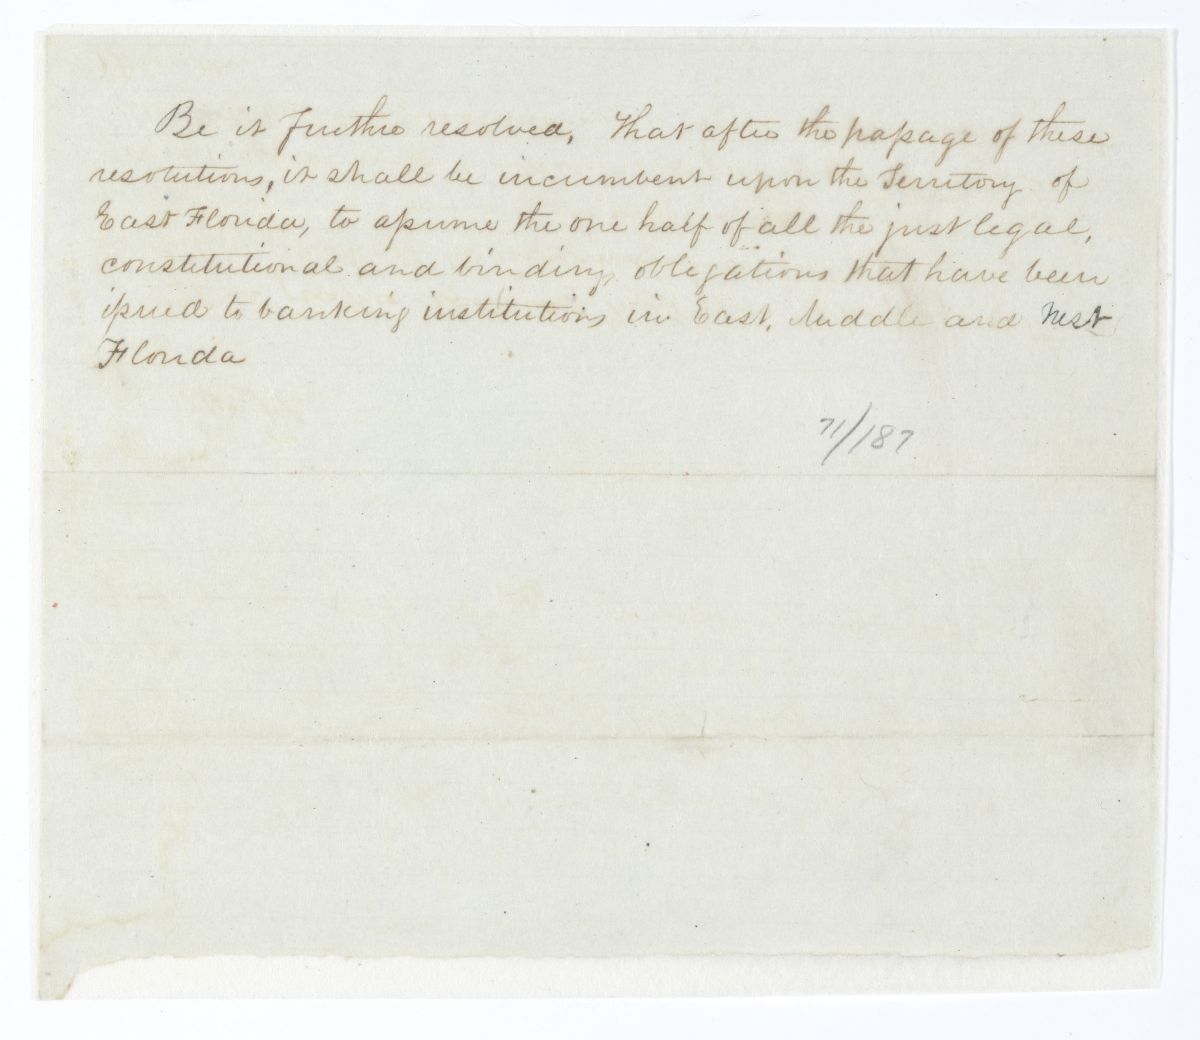 Be it further resolved, That after the passage of these
resolutions, it shall be incumbent upon the Territory of
East Florida, to assume the one half of all the just legal,
constitutional and binding, obligations that have been
issued to banking institutions in East, Middle and West
Florida
71/187